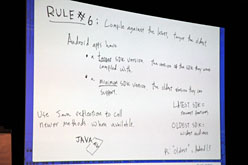 RULE #6: Compile against the latest, target the oldest
Android apps have
• a target SDK version: the version of the SDK they were
compiled with.
• a minimum SDK version: the oldest version they can
support.
Use Java reflection to call
newer methods when available.
LATEST SDK =
OLDEST SDK =
widest audience
JAVA